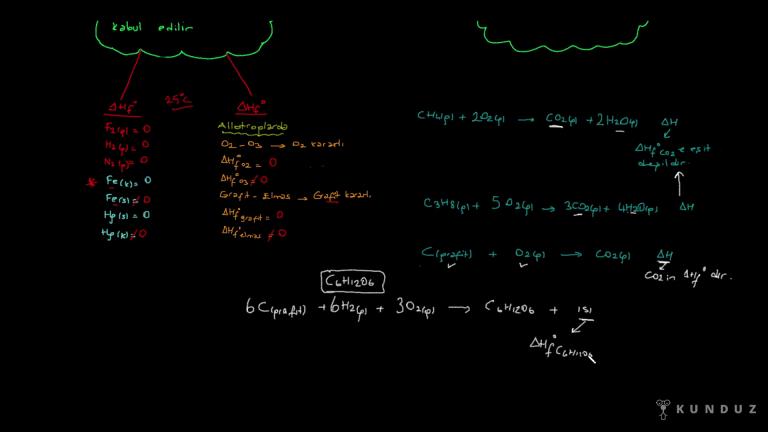 kabul edilir
ΔHf° 25°C ΔHf°
F2(g) = 0
H2(g) = 0
N2(g) = 0
* Fe(k) = 0
Fe(s) ≠ 0
Hg(s) = 0
Hg(k) ≠ 0
Allotroplarda
O2 - O3 → O2 kararlı
ΔHf° O2 = 0
ΔHf° O3 ≠ 0
Grafit - Elmas → Grafit kararlı
ΔHf° grafit = 0
ΔHf° elmas ≠ 0
CH4(g) + 2O2(g) → CO2(g) + 2H2O(g) ΔH
ΔHf° CO2'e eşit
değildir.
C3H8(g) + 5O2(g) → 3CO2(g) + 4H2O(g) ΔH
C(grafit) + O2(g) → CO2(g) ΔH
CO2'in ΔHf° dir.
C6H12O6
6C(grafit) + 6H2(g) + 3O2(g) → C6H12O6 + ısı
ΔHf° C6H12O6
KUNDUZ